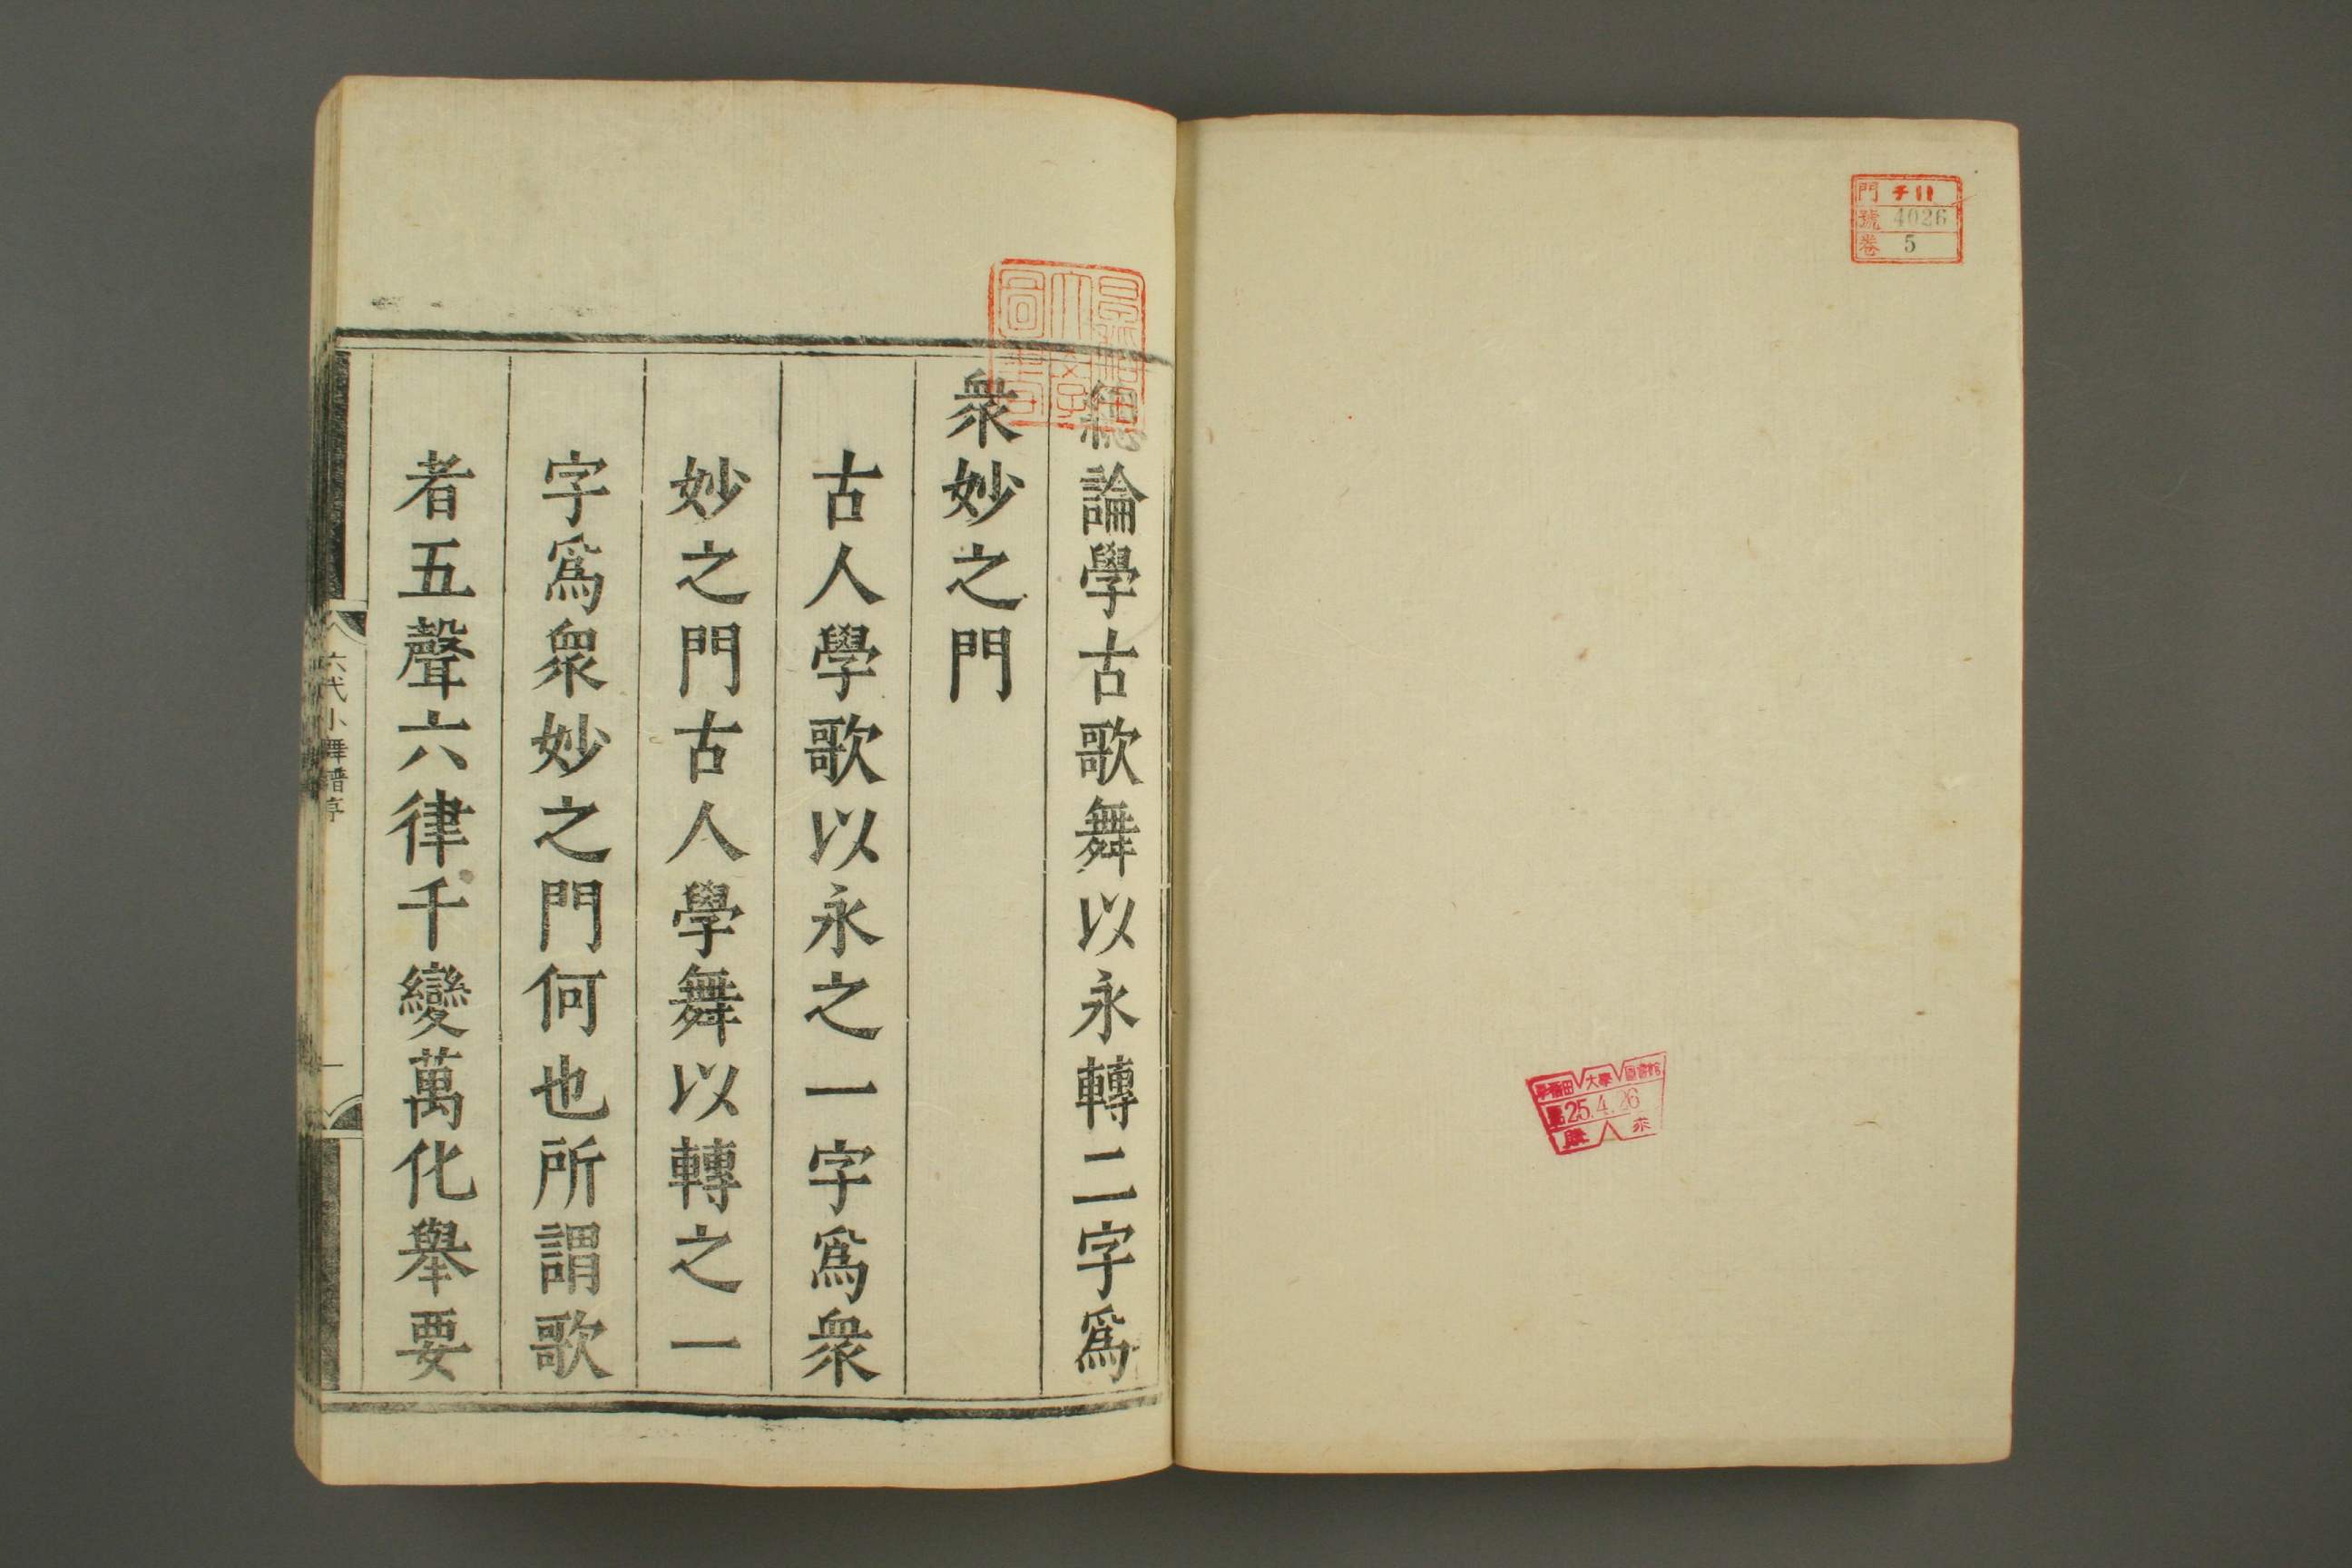 門 チ11
號 4026
卷 5
早稻田大學圖書館
25.4.26
購 求
總論學古歌舞以永轉二字爲
衆妙之門
古人學歌以永之一字爲衆
妙之門古人學舞以轉之一
字爲衆妙之門何也所謂歌
者五聲六律千變萬化舉要
六代小舞譜序
一